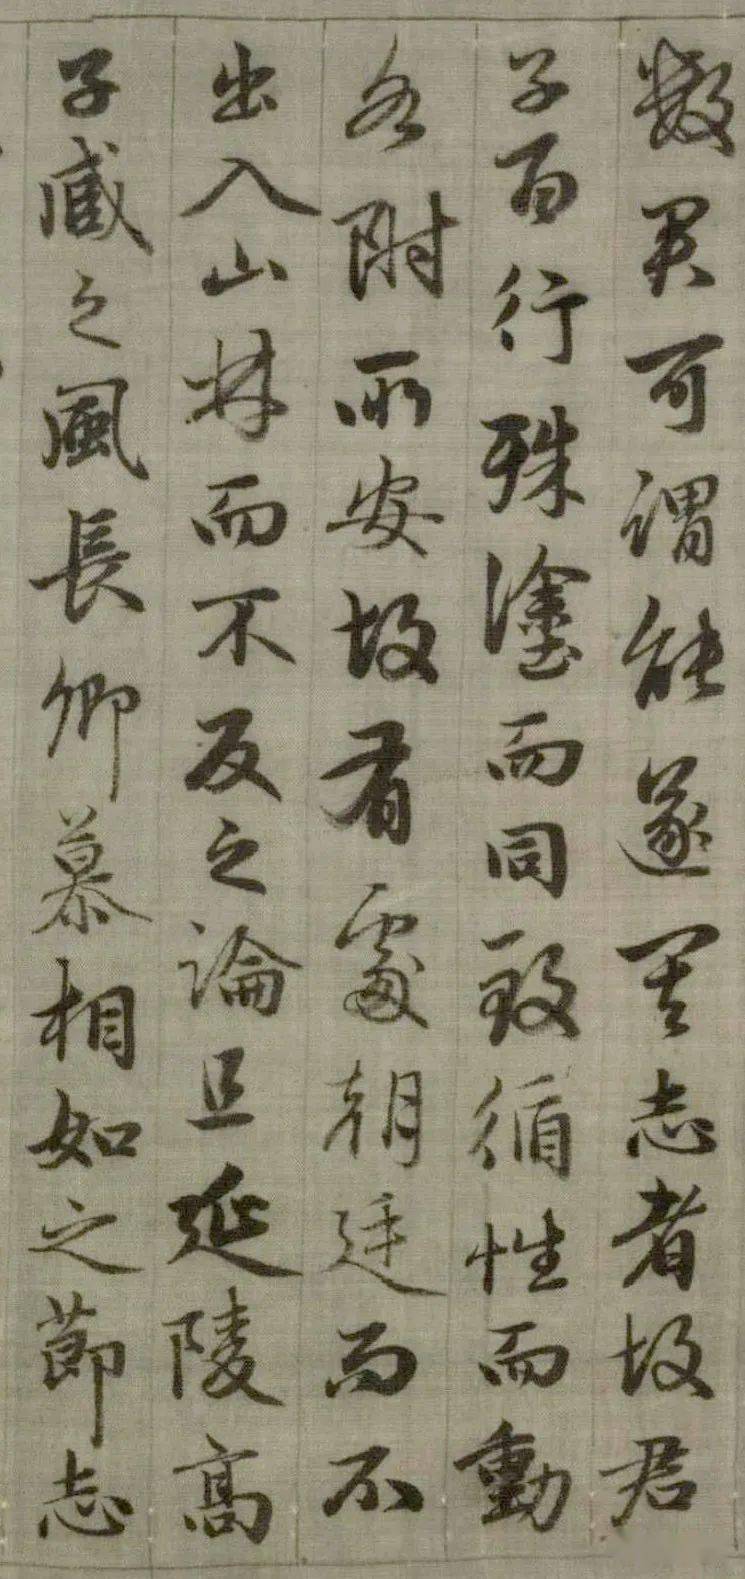 数君可謂能遂其志者故君
子百行殊塗而同致循性而動
各附所安故有處朝廷而不
出入山林而不反之論且延陵高
子臧之風長卿慕相如之節志